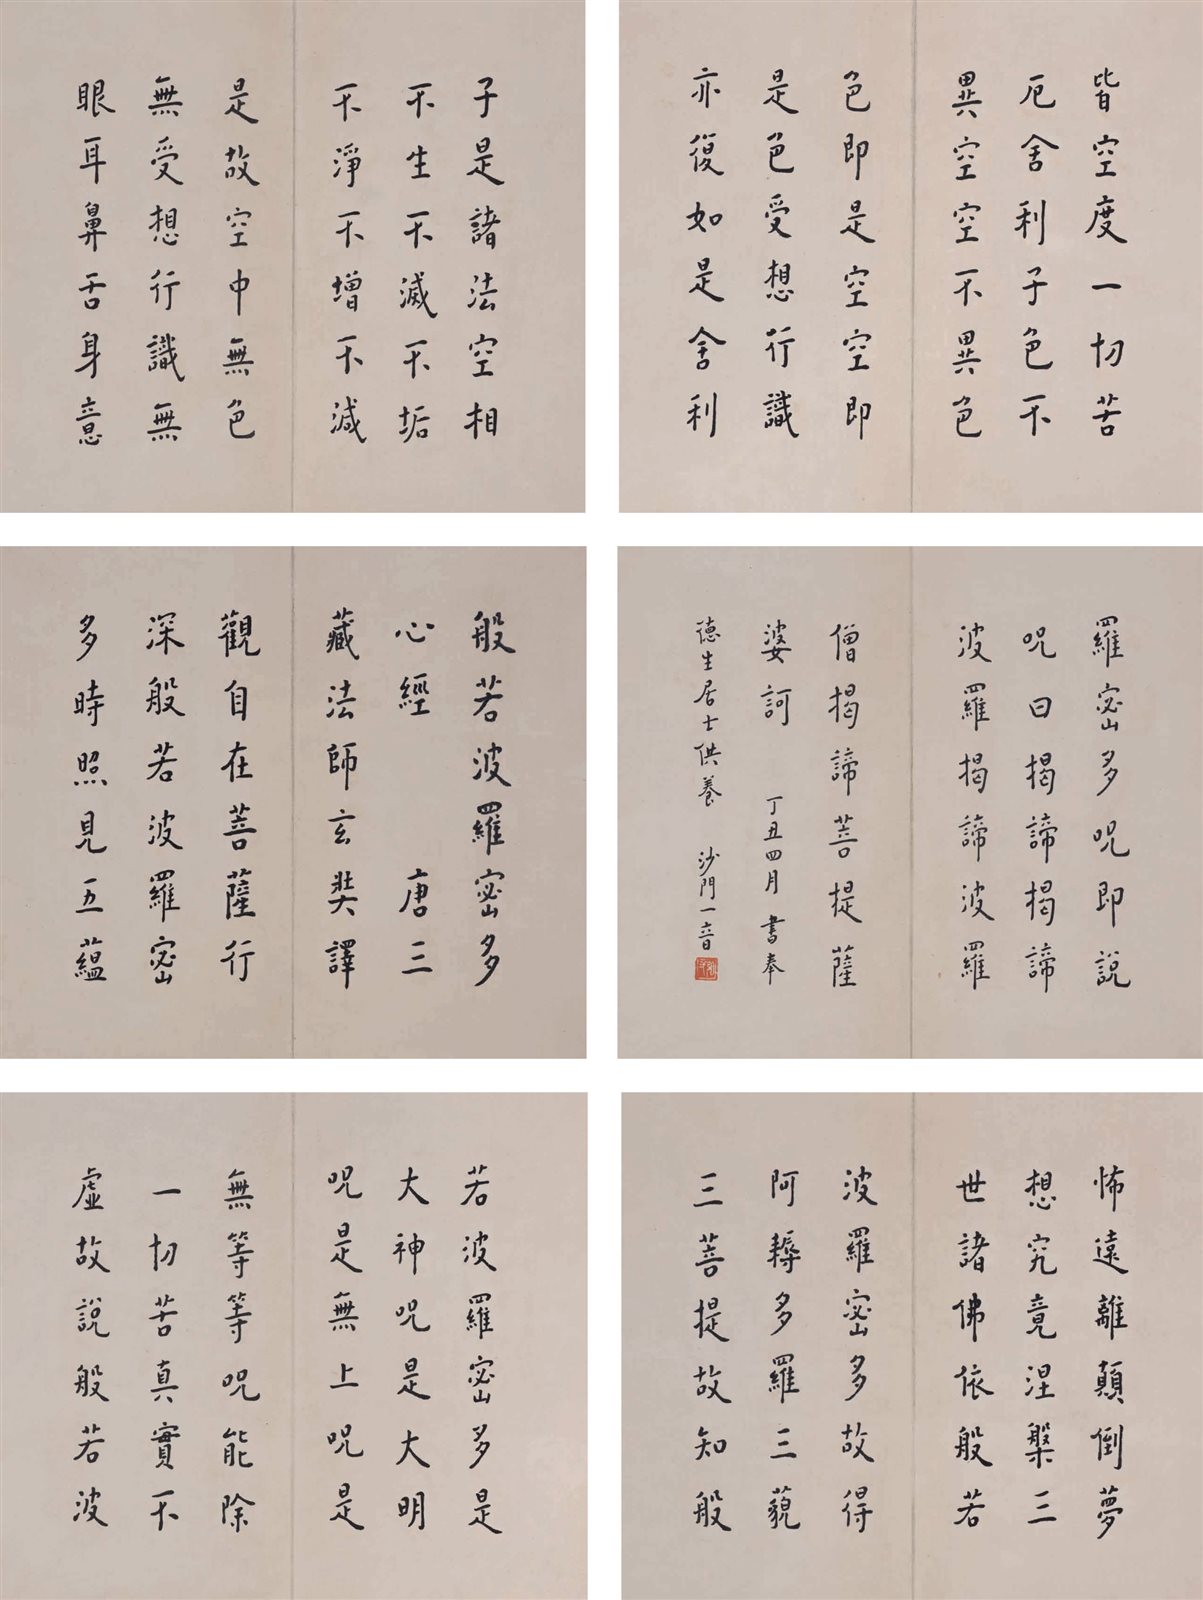 般若波羅密多
心經 唐三
藏法師玄奘譯
觀自在菩薩行
深般若波羅密
多時照見五蘊
皆空度一切苦
厄舍利子色不
異空空不異色
色即是空空即
是色受想行識
亦復如是舍利
子是諸法空相
不生不滅不垢
不淨不增不減
是故空中無色
無受想行識無
眼耳鼻舌身意
怖遠離顛倒夢
想究竟涅槃三
世諸佛依般若
波羅密多故得
阿耨多羅三藐
三菩提故知般
若波羅密多是
大神呪是大明
呪是無上呪是
無等等呪能除
一切苦真實不
虛故說般若波
羅密多呪即說
呪曰揭諦揭諦
波羅揭諦波羅
僧揭諦菩提薩
婆訶 丁丑四月書奉
德生居士供養 沙門一音